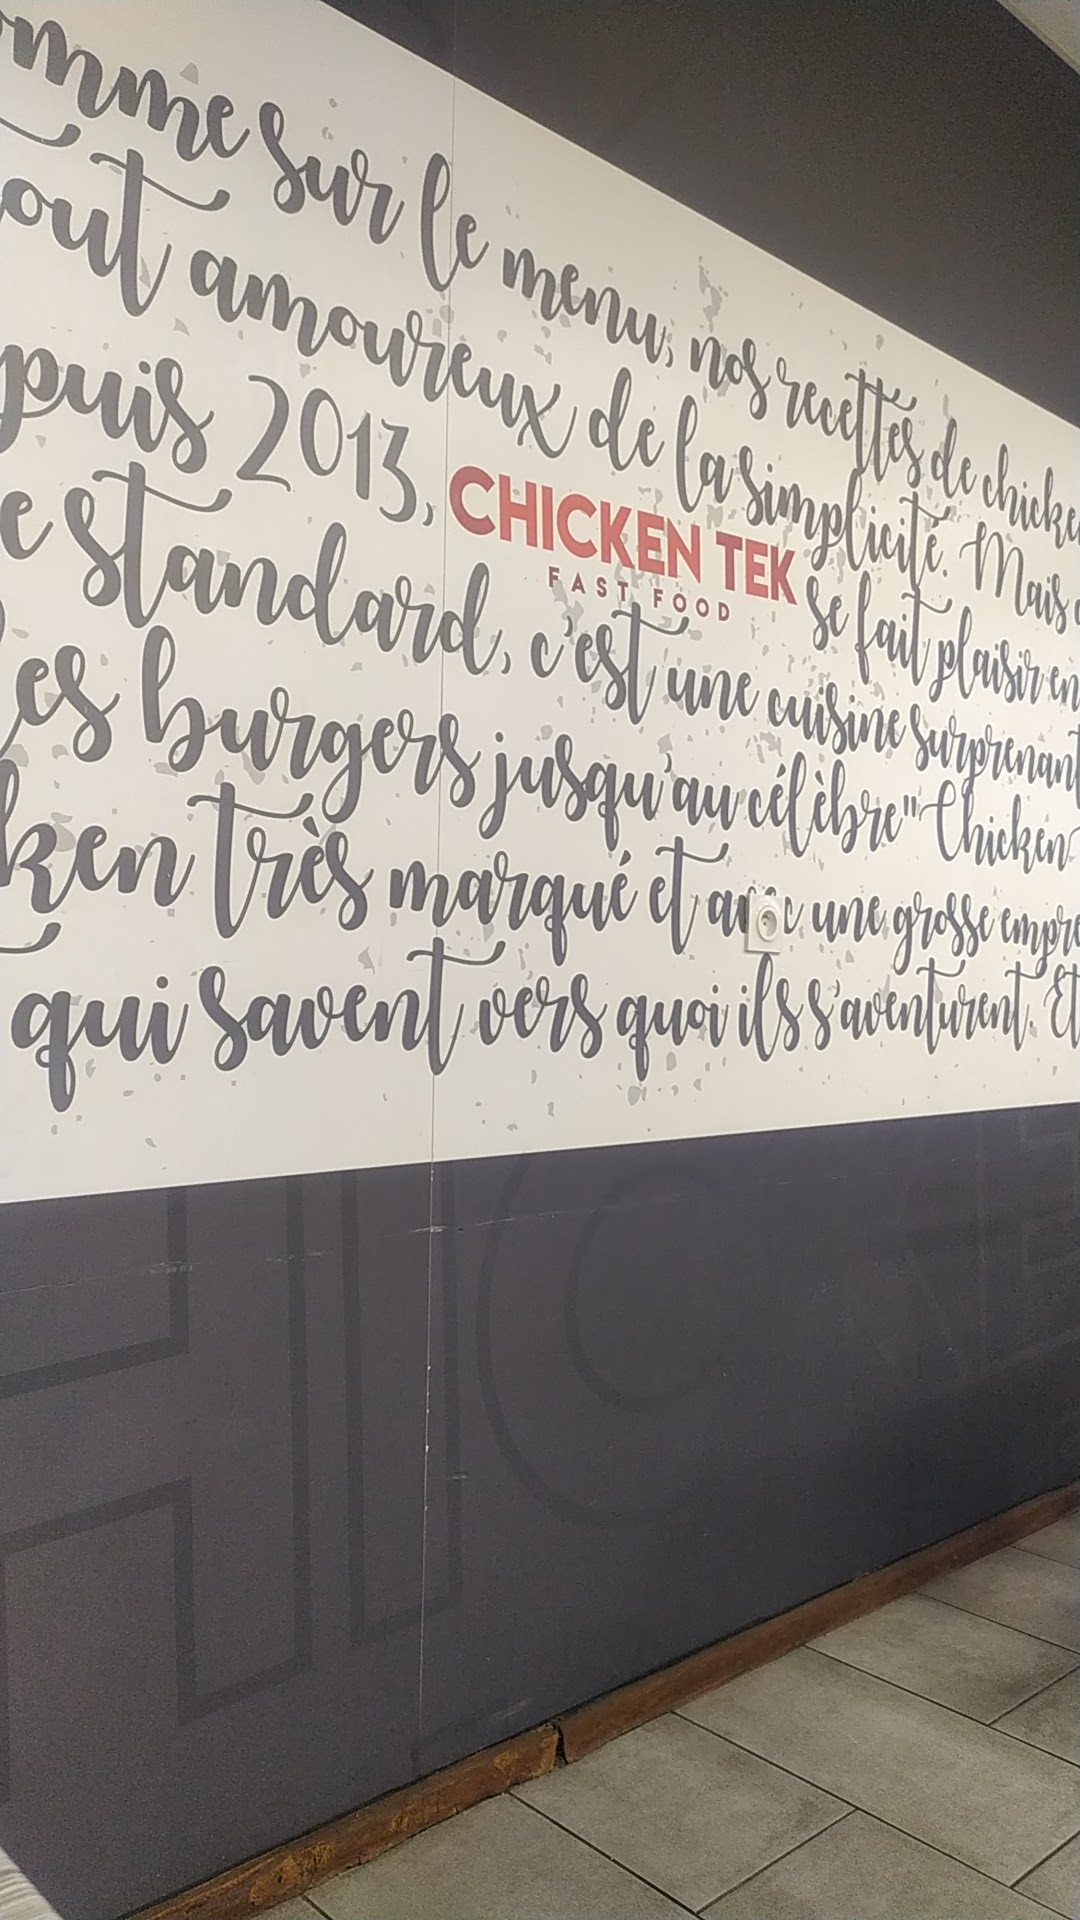 omme sur le menu, nos recettes de chicke
out amoureux de la simplicité. Mais
puis 2013, CHICKEN TEK se fait plaisir en
FAST FOOD
e standard, c'est une cuisine surprenant
es burgers jusqu'au célèbre "Chicken
ken très marqué et avec une grosse empre
qui savent vers quoi ils s'aventurent. Et
HICKE